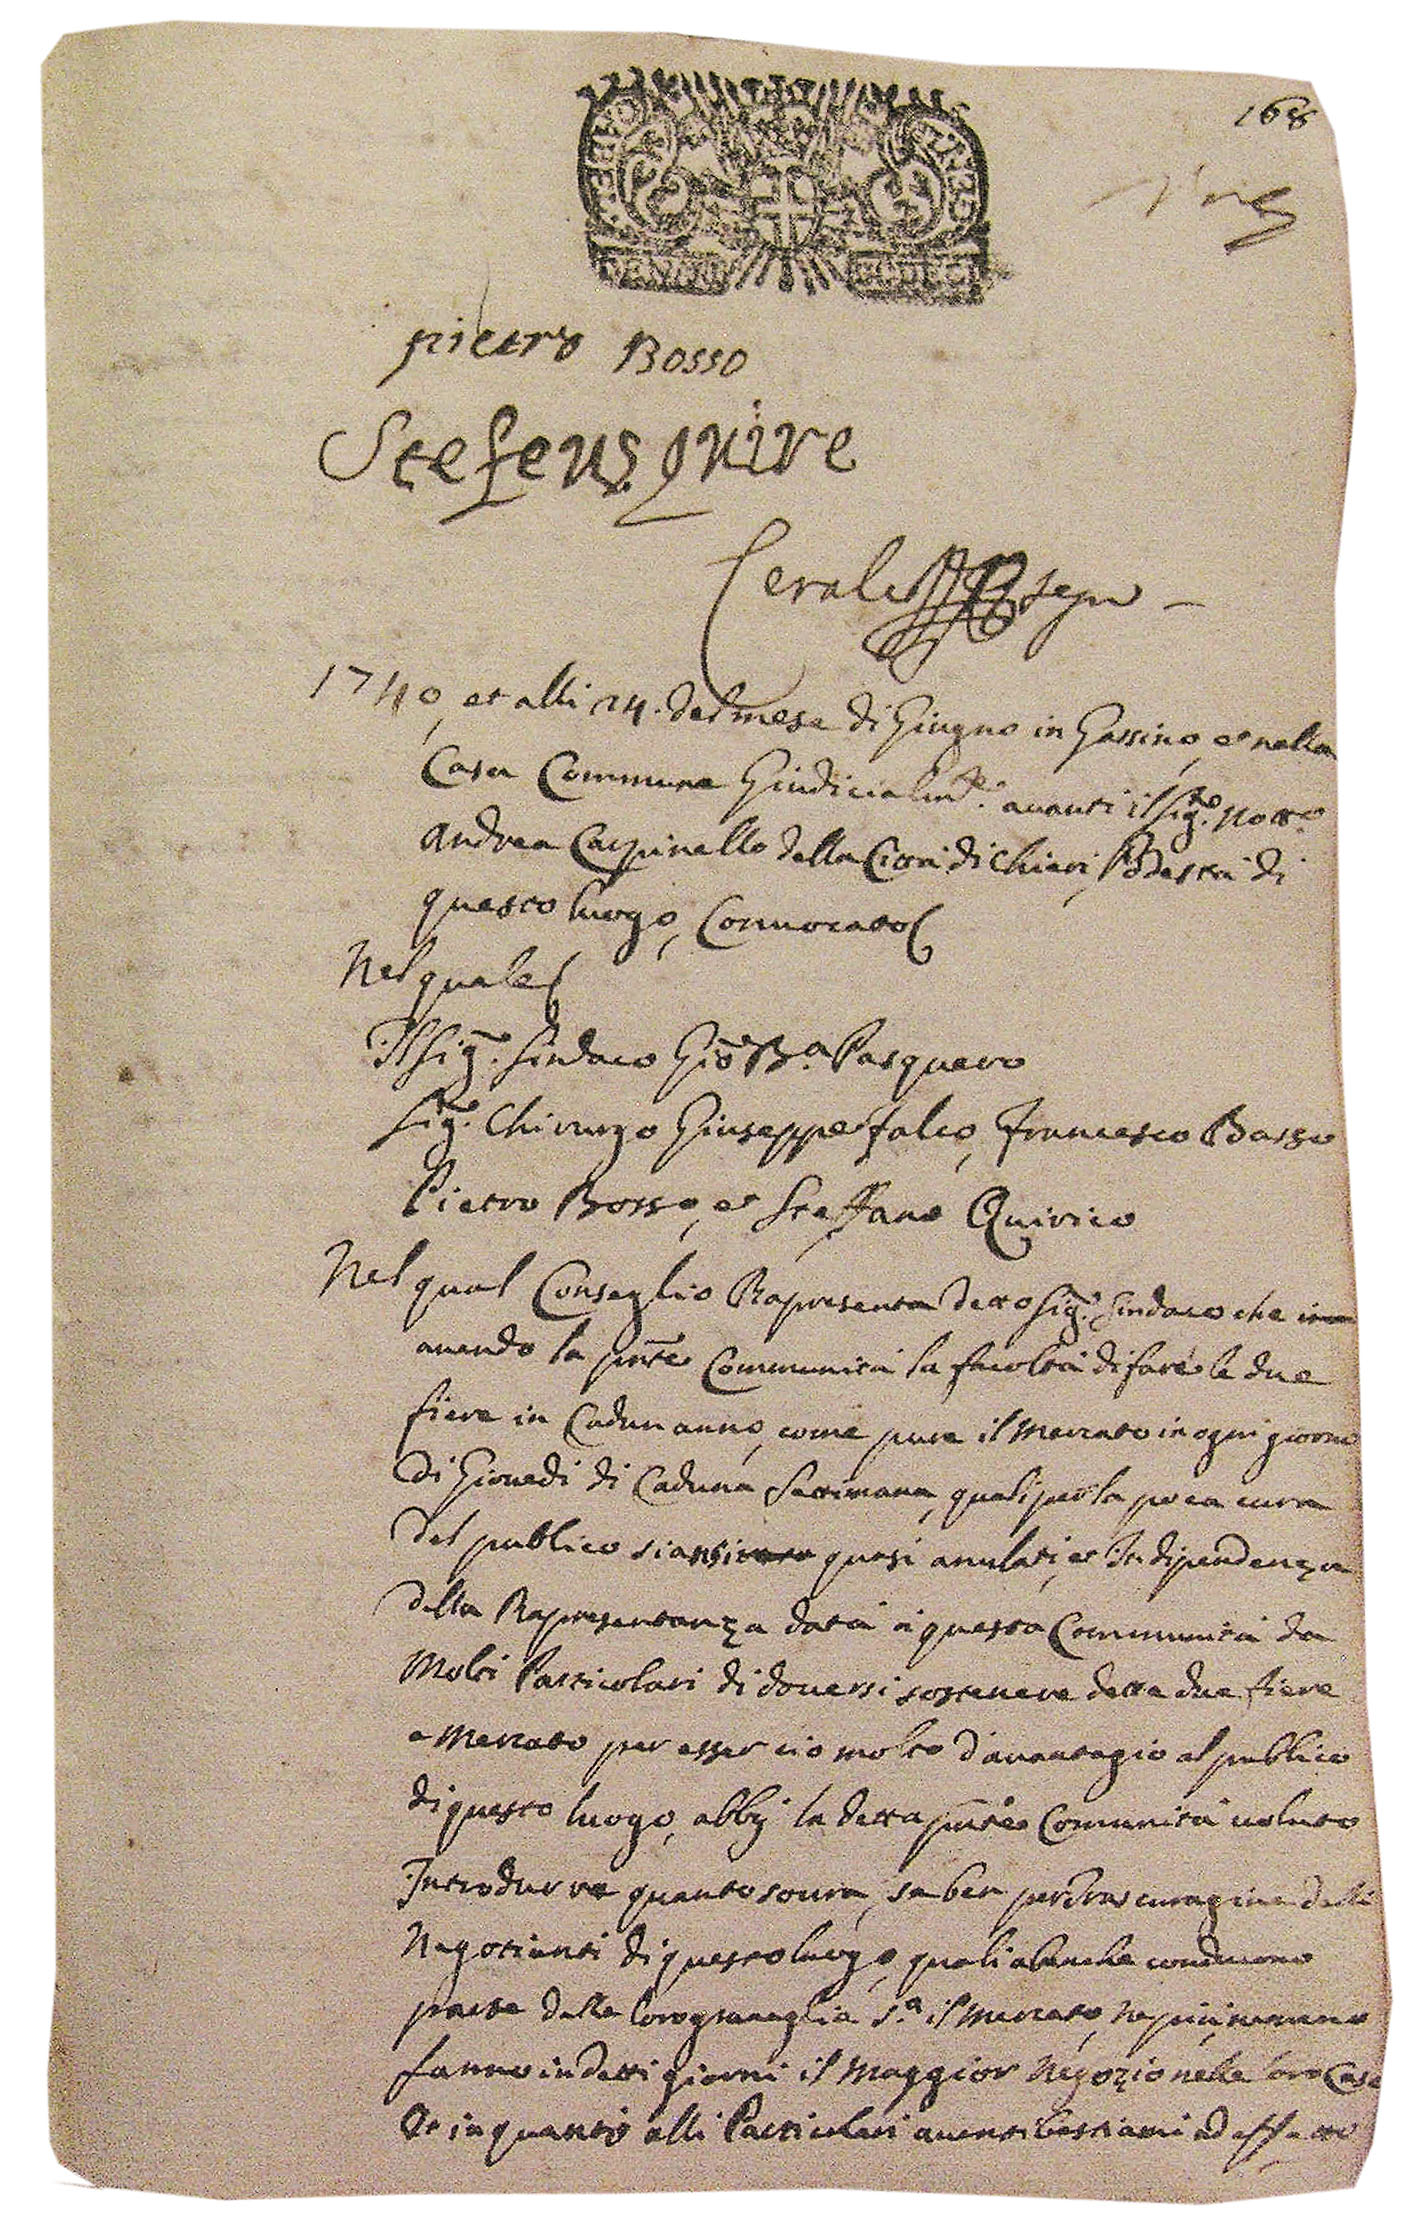 168
pietro Bosso
Stefens quire
segro
1740, et alli 24. del mese di Giugno in Gassino, et nella
Casa Commune Giudicialm.te avanti il Sig.r Nott.o
Andrea Carpinello della Città di Chieri, Podestà di
questo luogo, Convocato
Nel quale
Il Sig.r Sindaco Gio Ba. Pasquero
Sig.r Chirurgo Giuseppe Falco, Francesco Basso
Pietro Bosso, et Steffano Quirico
Nel qual Conseglio Rapresenta detto Sig.r Sindaco che
avendo la pnte Communità la facoltà di fare le due
fiere in Cadun anno, come pure il Mercato in ogni giorno
di Giovedi di Caduna Settimana, quali per la poca cura
del publico siansi quasi anulati, et In dipendenza
della Rapresentanza data à questa Communità da
Molti Particolari di doversi sostenere dette due fiere
e Mercato per esser cio molto d'avantagio al publico
di questo luogo, abbj la detta pnte Comunità voluto
Introdurre quanto soura, se ben per trascuragine delli
Negotianti di questo luogo, quali abenche conducono
parte delle loro s.a il Mercato,
fanno in detti giorni il Maggior Negozio nelle loro Case
Et in quanto alli Particolari aventi bestiami ad effetto